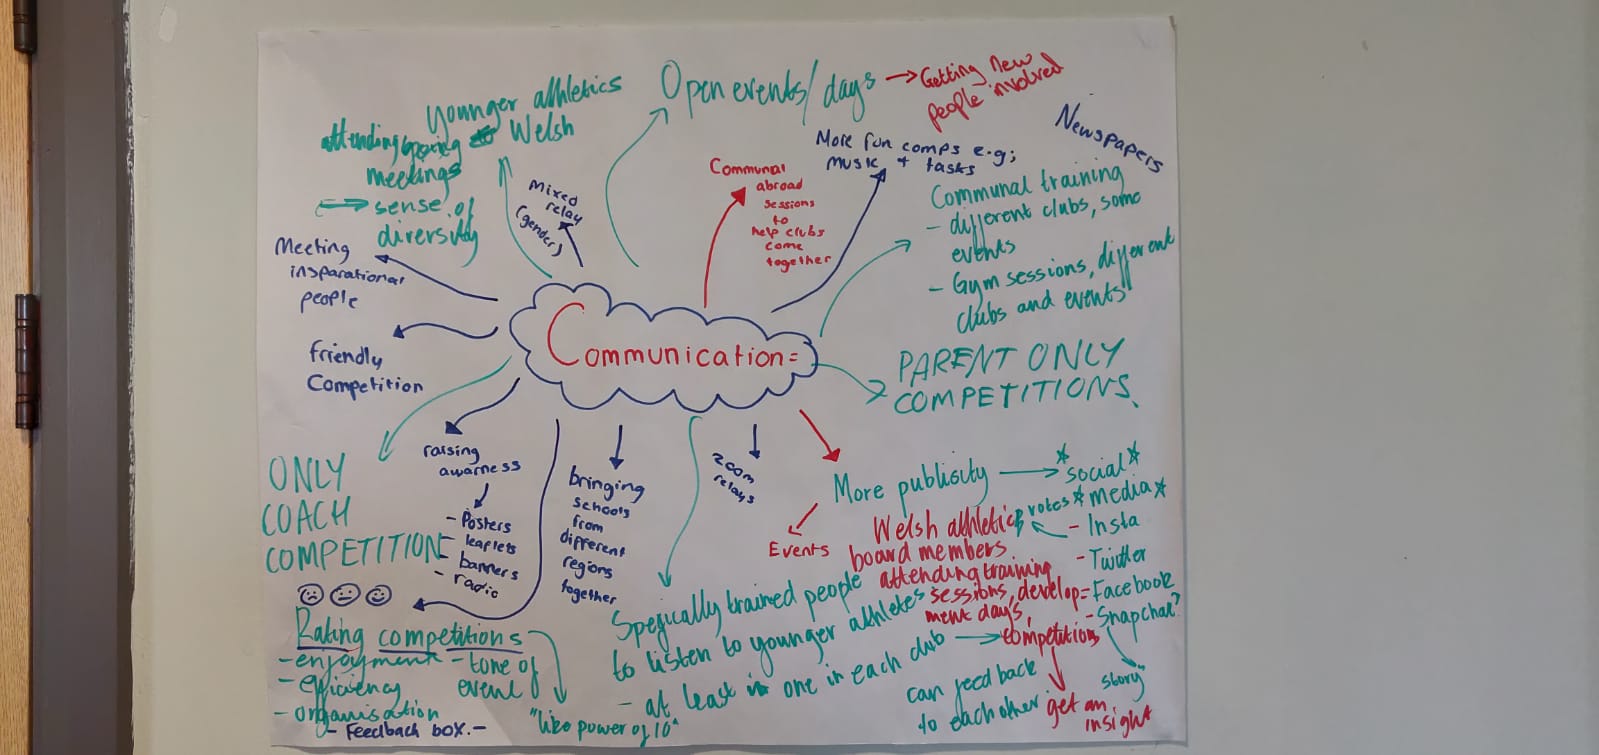 Communication =
younger athletics
attending
to Welsh
meetings
sense of
diversity
Mixed
relay
(gender)
Open events/days
Getting new
people involved
Communal
abroad
sessions
to
help clubs
come
together
More fun comps e.g;
music + tasks
Newspapers
Communal training
- different clubs, some
events
- Gym sessions, different
clubs and events
PARENT ONLY
COMPETITIONS.
Meeting
insparational
people
friendly
Competition
ONLY
COACH
COMPETITION
raising
awarness
- Posters
- leaflets
- banners
- radio
Rating competitions
- enjoyment - tone of
event
- efficiency
- organisation
- Feedback box. -
"like power of 10"
bringing
schools
from
different
regions
together
Zoom
relays
More publisity
*social*
*media*
votes
- Insta
- Twitter
- Facebook
- Snapchat?
story"
Events
Welsh athletics
board members
attending training
sessions, develop=
ment days,
competitions
get an
insight
Spegically trained people
to listen to younger athletes
- at least one in each club
can feed back
to each other